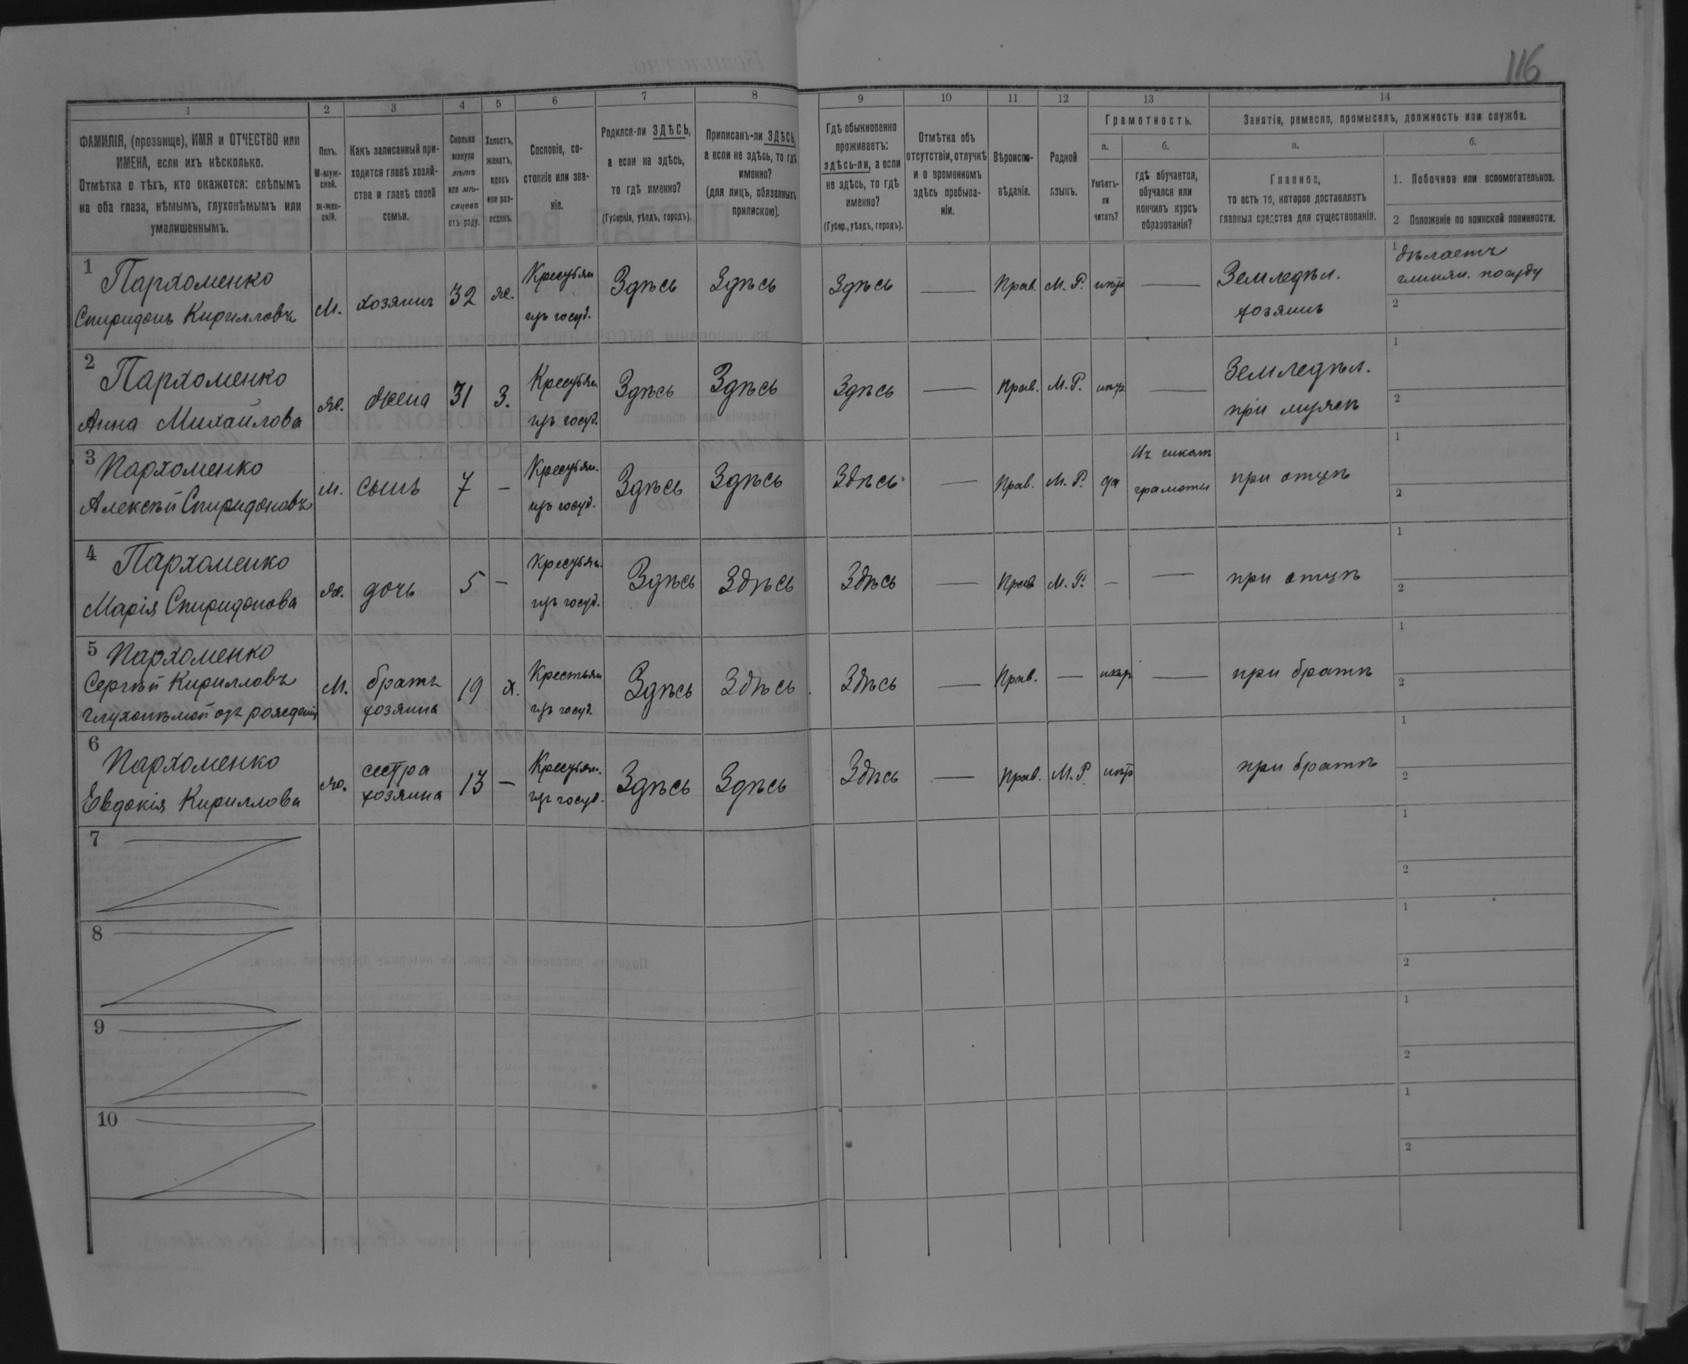 116
1 2 3 4 5 6 7 8 9 10 11 12 13 14
ФАМИЛІЯ, (прозвище), ИМЯ и ОТЧЕСТВО или
ИМЕНА, если ихъ нѣсколько.
Отмѣтка о тѣхъ, кто окажется: слѣпымъ
на оба глаза, нѣмымъ, глухонѣмымъ или
умалишеннымъ.
Полъ.
М-муж-
ской.
ж-жен-
скій.
Какъ записанный при-
ходится главѣ хозяй-
ства и главѣ своей
семьи.
Сколько
минуло
лѣтъ
или мѣ-
сяцевъ
отъ роду.
Холостъ,
женатъ,
вдовъ
или раз-
веденъ.
Сословіе, со-
стояніе или зва-
ніе.
Родился-ли ЗДѢСЬ,
а если не здѣсь,
то гдѣ именно?
(Губернія, уѣздъ, городъ).
Приписанъ-ли ЗДѢСЬ,
а если не здѣсь, то гдѣ
именно?
(для лицъ, обязанныхъ
припискою).
Гдѣ обыкновенно
проживаетъ:
здѣсь-ли, а если
не здѣсь, то гдѣ
именно?
(Губер., уѣздъ, городъ).
Отмѣтка объ
отсутствіи, отлучкѣ
и о временномъ
здѣсь пребыва-
ніи.
Вѣроиспо-
вѣданіе.
Родной
языкъ.
Грамотность.
а.
Умѣетъ-
ли
читать?
б.
гдѣ обучается,
обучался или
кончилъ курсъ
образованія?
Занятія, ремесло, промыселъ, должность или служба.
а.
Главное,
то есть то, которое доставляетъ
главныя средства для существованія.
б.
1. Побочное или вспомогательное.
2 Положеніе по воинской повинности.
1 Пархоменко
Спиридонъ Кирилловъ
М. хозяинъ 32 ж. Крестьян. изъ госуд. Здѣсь Здѣсь Здѣсь — Прав. М. Р. нѣтъ — Земледѣл. хозяинъ
1 дѣлаетъ
глинян. посуду
2
2 Пархоменко
Анна Михайлова
ж. жена 31 з. Крестьян. изъ госуд. Здѣсь Здѣсь Здѣсь — Прав. М. Р. нѣтъ — Земледѣл. при мужѣ
1
2
3 Пархоменко
Алексѣй Спиридоновъ
м. сынъ 7 — Крестьян. изъ госуд. Здѣсь Здѣсь Здѣсь — Прав. М. Р. да Въ школѣ грамоты при отцѣ
1
2
4 Пархоменко
Марія Спиридонова
ж. дочь 5 — Крестьян. изъ госуд. Здѣсь Здѣсь Здѣсь — Прав М. Р. — — при отцѣ
1
2
5 Пархоменко
Сергѣй Кирилловъ
глухонѣмой отъ рожденія
М. братъ хозяина 19 х. Крестьян изъ госуд. Здѣсь Здѣсь Здѣсь — Прав. — нѣтъ — при братѣ
1
2
6 Пархоменко
Евдокія Кириллова
ж. сестра хозяина 13 — Крестьян. изъ госуд. Здѣсь Здѣсь Здѣсь — Прав. М. Р. нѣтъ при братѣ
1
2
7
1
2
8
1
2
9
1
2
10
1
2